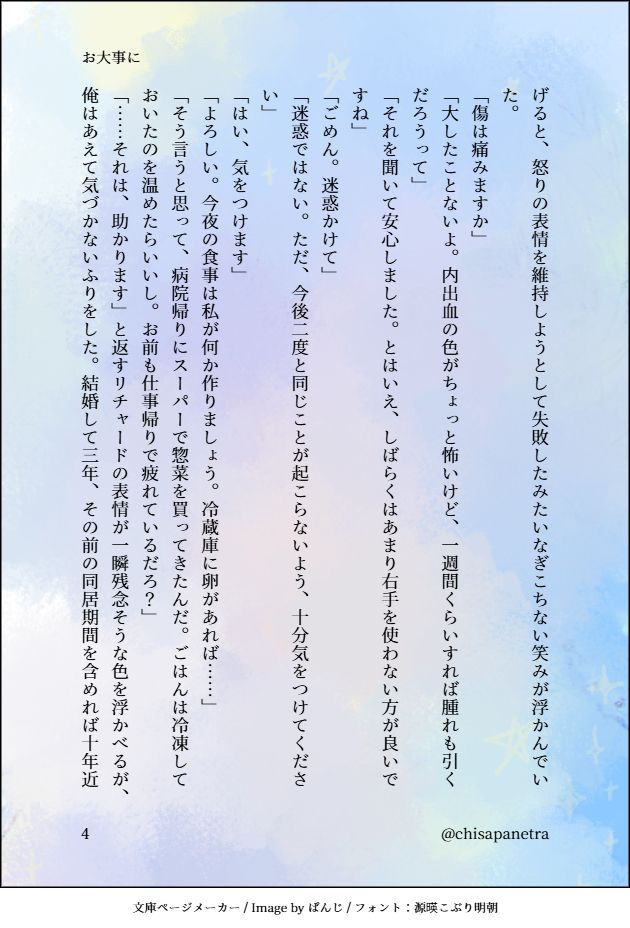 お大事に
げると、怒りの表情を維持しようとして失敗したみたいなぎこちない笑みが浮かんでい
た。
「傷は痛みますか」
「大したことないよ。内出血の色がちょっと怖いけど、一週間くらいすれば腫れも引く
だろうって」
「それを聞いて安心しました。とはいえ、しばらくはあまり右手を使わない方が良いで
すね」
「ごめん。迷惑かけて」
「迷惑ではない。ただ、今後二度と同じことが起こらないよう、十分気をつけてくださ
い」
「はい、気をつけます」
「よろしい。今夜の食事は私が何か作りましょう。冷蔵庫に卵があれば……」
「そう言うと思って、病院帰りにスーパーで惣菜を買ってきたんだ。ごはんは冷凍して
おいたのを温めたらいいし。お前も仕事帰りで疲れているだろ？」
「……それは、助かります」と返すリチャードの表情が一瞬残念そうな色を浮かべるが、
俺はあえて気づかないふりをした。結婚して三年、その前の同居期間を含めれば十年近
4
@chisapanetra
文庫ページメーカー / Image by ぱんじ / フォント：源暎こぶり明朝